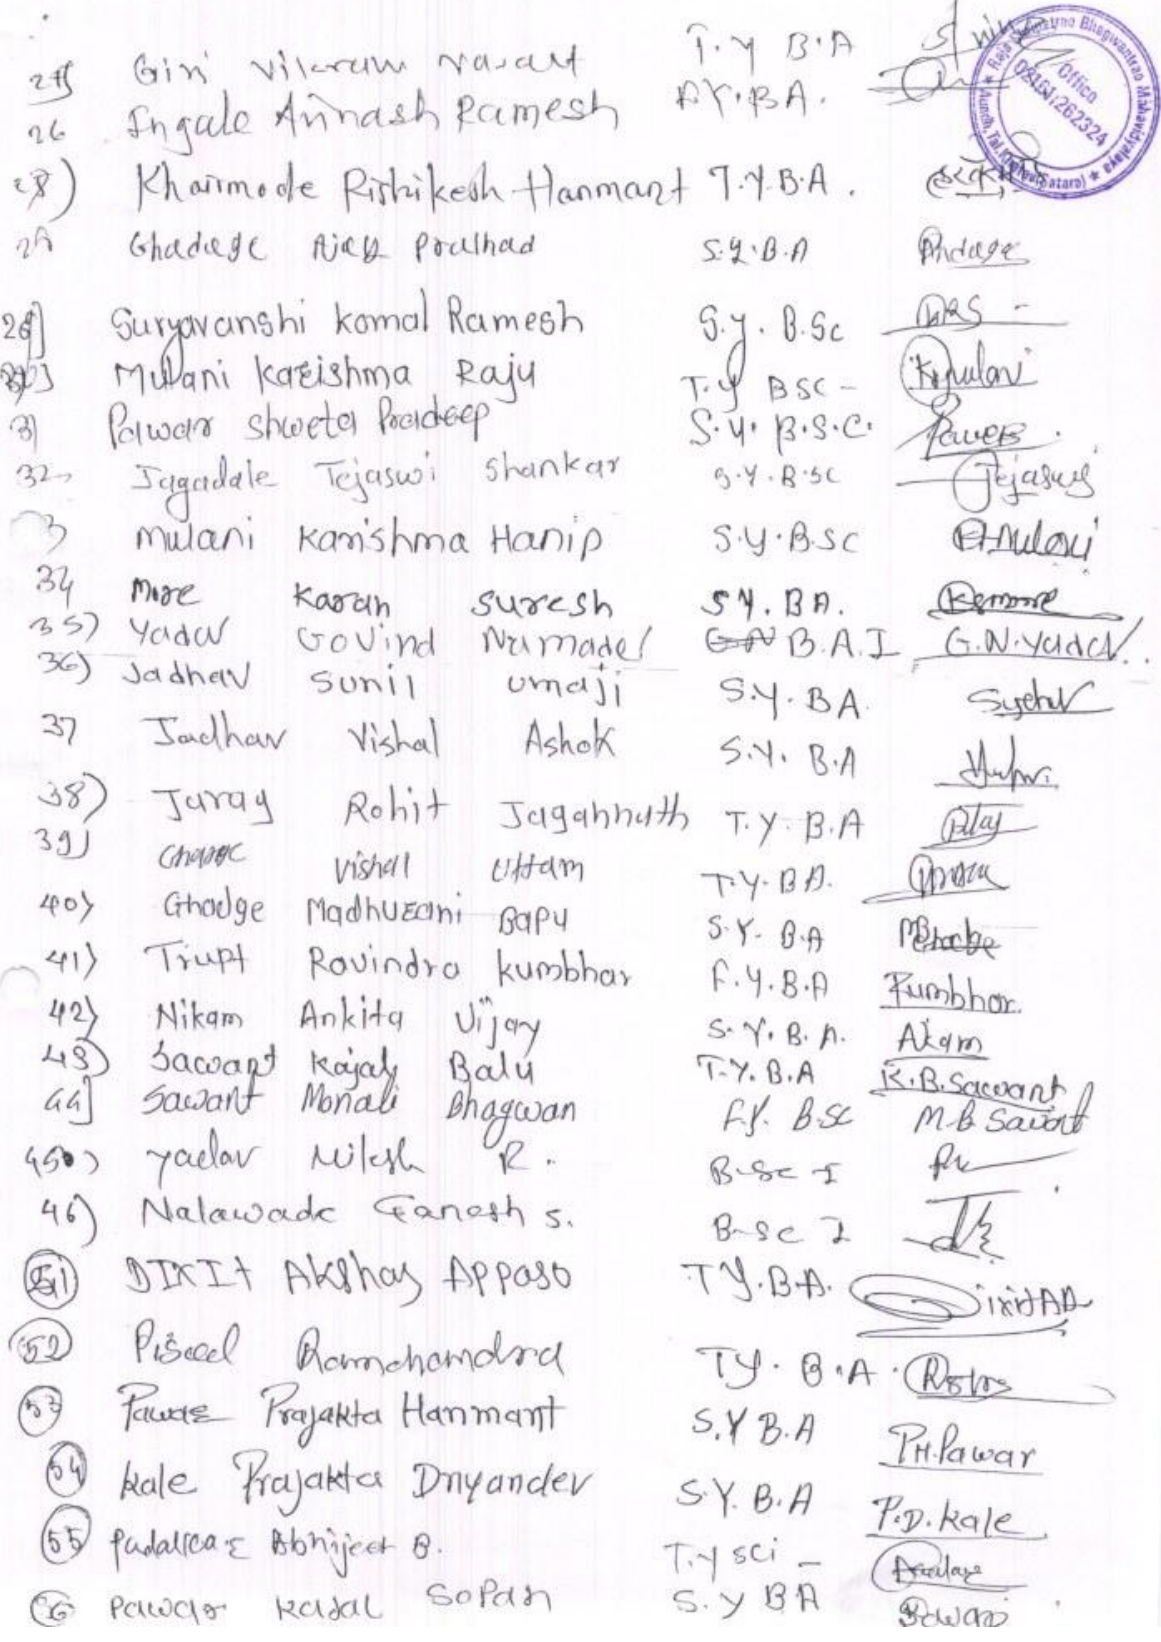 25) Giri Vikram Vasant T.Y B.A
26 Ingale Avinash Ramesh F.Y.B.A.
28) Khairmode Rishikesh Hanmant T.Y.B.A.
Ghadage Ajay Pralhad S.Y.B.A
29] Suryavanshi Komal Ramesh S.Y. B.Sc
Mulani Kareishma Raju T.Y BSC - K.Mulani
31 Pawar Shweta Pradeep S.Y. B.S.C.
32 Jagadale Tejaswi Shankar S.Y.B.SC Tejaswi
3 Mulani Karishma Hanip S.Y.B.SC
34 More Karan Suresh S.Y. BA.
35) Yadav Govind Namadev B.A.I G.N.Yadav
36) Jadhav Sunil Umaji S.Y. BA.
37 Jadhav Vishal Ashok S.Y. B.A
38) Jaray Rohit Jagahnath T.Y. B.A
39) Vishal Uttam T.Y. BA.
40) Ghadge Madhurani Bapu S.Y. B.A
41) Trupt Ravindra Kumbhar F.Y.B.A Kumbhar
42) Nikam Ankita Vijay S.Y. B.A. Akam
43) Sawant Kajal Balu T.Y. B.A K.B.Sawant
44] Sawant Monali Bhagwan F.Y. B.SC M.B Savant
45) Yadav Nilesh R. B.Sc I
46) Nalawade Ganesh S. B.Sc I
51 DIXIT Akshay Appaso TY.B.A. Dixit AA
52 Pisal Ramchandra TY. B.A.
53 Pawar Prajakta Hanmant S.Y B.A P.H.Pawar
54 Kale Prajakta Dnyandev S.Y. B.A P.D. Kale
55 Padalkar Abhijeet B. T.Y Sci -
56 Pawar Kajal Sopan S.Y BA
Office
02161:262324